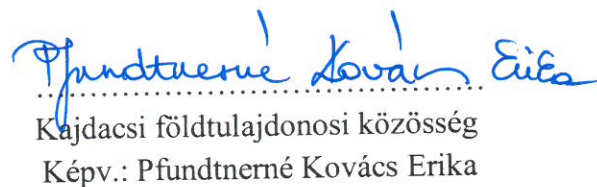 Pfundtnerné Kovács Erika
Kajdacsi földtulajdonosi közösség
Képv.: Pfundtnerné Kovács Erika